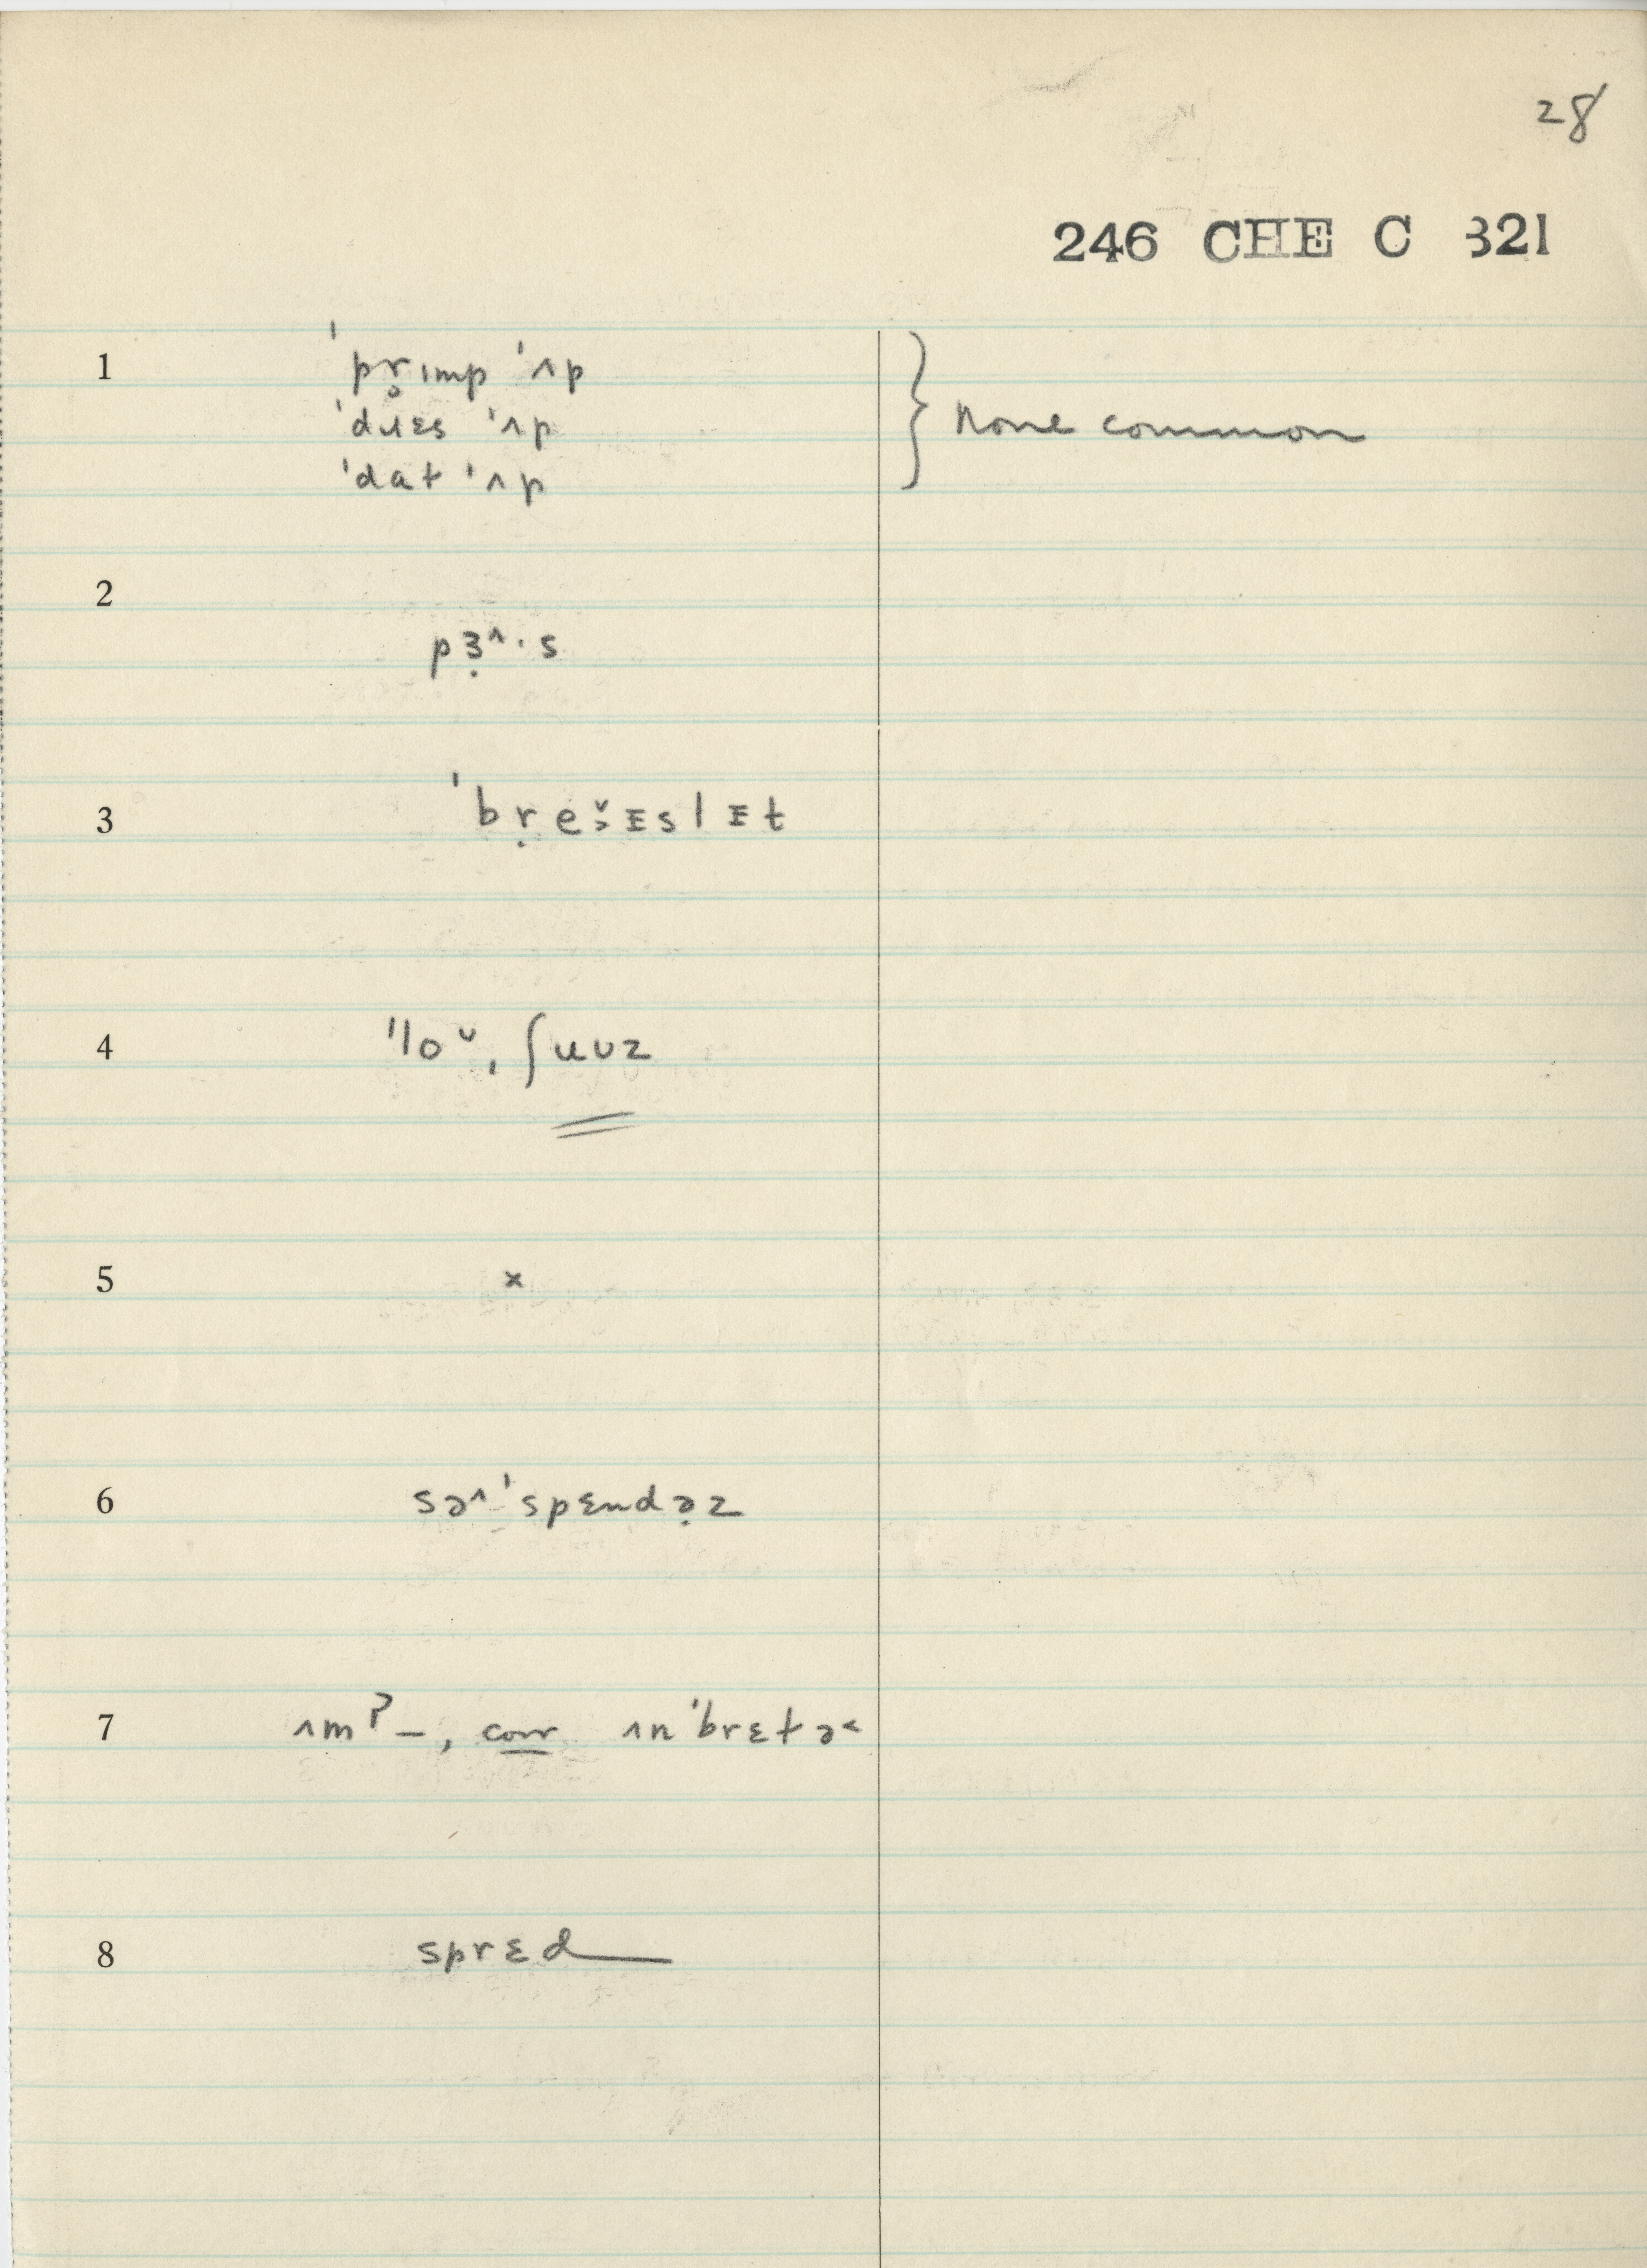 28
246 CHE C 321
1 ˈpr̥ɪmp ˈʌp
ˈdɹɛs ˈʌp
ˈdat ˈʌp
} none common
2 pɜ̣^·s
3 ˈbṛeˇ˃ɪslɪt
4 ˈloᵕˌʃuʊz
5 ×
6 sə^ˈspɛndə̣z
7 ʌmˀ–, corr ʌnˈbrɛtə˂
8 sprɛd